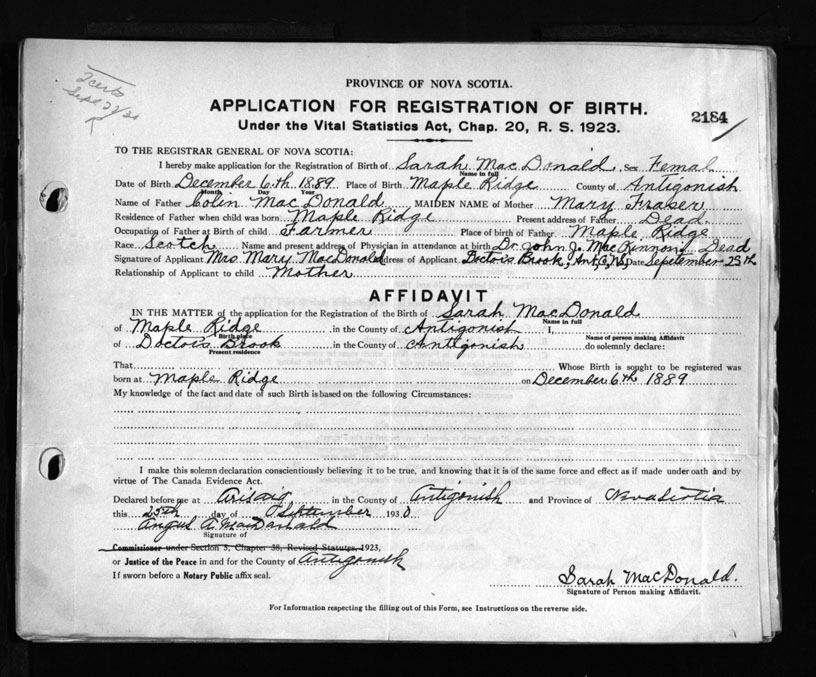 2 certs
Sept 27/30
PROVINCE OF NOVA SCOTIA.
APPLICATION FOR REGISTRATION OF BIRTH.
2184
Under the Vital Statistics Act, Chap. 20, R. S. 1923.
TO THE REGISTRAR GENERAL OF NOVA SCOTIA:
I hereby make application for the Registration of Birth of Sarah MacDonald, Sex Femal
Name in full
Date of Birth December 6th 1889 Place of Birth Maple Ridge County of Antigonish
Month Day Year
Name of Father Colin MacDonald MAIDEN NAME of Mother Mary Fraser
Residence of Father when child was born Maple Ridge Present address of Father Dead
Occupation of Father at Birth of child Farmer Place of birth of Father Maple Ridge
Race Scotch Name and present address of Physician in attendance at birth Dr. John J. MacKinnon, Dead
Signature of Applicant Mrs. Mary MacDonald Address of Applicant Doctors Brook, Ant, C, NS, Date September 25th
Relationship of Applicant to child Mother
AFFIDAVIT
IN THE MATTER of the application for Registration of the Birth of Sarah MacDonald
Name in full
of Maple Ridge in the County of Antigonish I,
Birth place Name of person making Affidavit
of Doctors Brook in the County of Antigonish do solemnly declare:
Present residence
That Whose Birth is sought to be registered was
born at Maple Ridge on December 6th 1889
My knowledge of the fact and date of such Birth is based on the following Circumstances:
I make this solemn declaration conscientiously believing it to be true, and knowing that it is of the same force and effect as if made under oath and by
virtue of The Canada Evidence Act.
Declared before me at Arisaig in the County of Antigonish and Province of Nova Scotia
this 25th day of September 1930
Angus A. MacDonald
Signature of
Commissioner under Section 3, Chapter 38, Revised Statutes, 1923,
or Justice of the Peace in and for the County of Antigonish
If sworn before a Notary Public affix seal.
Sarah MacDonald.
Signature of Person making Affidavit.
For Information respecting the filling out of this Form, see Instructions on the reverse side.